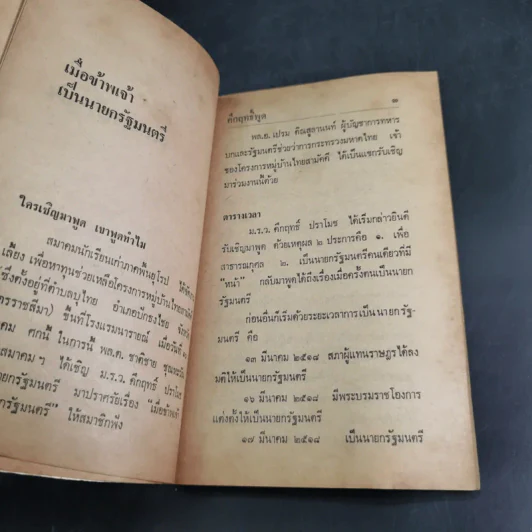 เมื่อข้าพเจ้า
เป็นนายกรัฐมนตรี
ใครเชิญมาพูด เขาพูดทำไม
สมาคมนักเรียนเก่าภาคพื้นยุโรป ได้จัด
เลี้ยง เพื่อหาทุนช่วยเหลือโครงการหมู่บ้านไทยสามัคคี
ซึ่งตั้งอยู่ที่ตำบลบุไทย อำเภอปักธงชัย จังหวัด
ครราชสีมา) ขึ้นที่โรงแรมนารายณ์ เมื่อวันที่
คม ศกนี้ ในการนี้ พล.ต. ชาติชาย ชุณหะวัณ
สมาคมฯ ได้เชิญ ม.ร.ว. คึกฤทธิ์ ปราโมช
ายกรัฐมนตรี มาปราศรัยเรื่อง "เมื่อข้าพเจ้า
กรัฐมนตรี" ให้สมาชิกฟัง
คึกฤทธิ์พูด
พล.อ. เปรม ติณสูลานนท์ ผู้บัญชาการทหาร
บกและรัฐมนตรีช่วยว่าการกระทรวงมหาดไทย เจ้า
ของโครงการหมู่บ้านไทยสามัคคี ได้เป็นแขกรับเชิญ
มาร่วมงานนี้ด้วย
ตารางเวลา
ม.ร.ว. คึกฤทธิ์ ปราโมช ได้เริ่มกล่าวยินดี
รับเชิญมาพูด ด้วยเหตุผล ๒ ประการคือ ๑. เพื่อ
สาธารณกุศล ๒. เป็นนายกรัฐมนตรีคนเดียวที่มี
"หน้า" กลับมาพูดได้ถึงเรื่องเมื่อครั้งตนเป็นนายก
รัฐมนตรี
ก่อนอื่นก็เริ่มด้วยระยะเวลาการเป็นนายกรัฐ-
มนตรี คือ
๑๓ มีนาคม ๒๕๑๘ สภาผู้แทนราษฎรได้ลง
มติให้เป็นนายกรัฐมนตรี
๑๖ มีนาคม ๒๕๑๘ มีพระบรมราชโองการ
แต่งตั้งให้เป็นนายกรัฐมนตรี
๑๗ มีนาคม ๒๕๑๘ เป็นนายกรัฐมนตรี